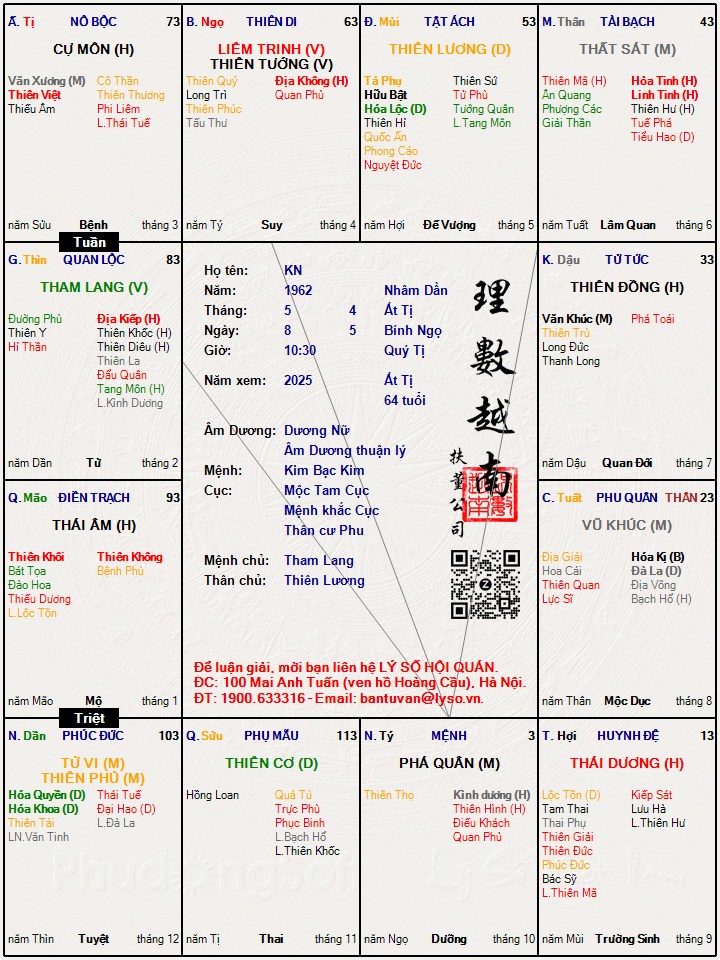 Ấ. Tị NÔ BỘC 73
CỰ MÔN (H)
Văn Xương (M) Cô Thần
Thiên Việt Thiên Thương
Thiếu Âm Phi Liêm
L.Thái Tuế
năm Sửu Bệnh tháng 3
B. Ngọ THIÊN DI 63
LIÊM TRINH (V)
THIÊN TƯỚNG (V)
Thiên Quý Địa Không (H)
Long Trì Quan Phủ
Thiên Phúc
Tấu Thư
năm Tý Suy tháng 4
Đ. Mùi TẬT ÁCH 53
THIÊN LƯƠNG (D)
Tả Phụ Thiên Sứ
Hữu Bật Tử Phù
Hóa Lộc (D) Tướng Quân
Thiên Hỉ L.Tang Môn
Quốc Ấn
Phong Cáo
Nguyệt Đức
năm Hợi Đế Vượng tháng 5
M. Thân TÀI BẠCH 43
THẤT SÁT (M)
Thiên Mã (H) Hỏa Tinh (H)
Ân Quang Linh Tinh (H)
Phượng Các Thiên Hư (H)
Giải Thần Tuế Phá
Tiểu Hao (D)
năm Tuất Lâm Quan tháng 6
Tuần
G. Thìn QUAN LỘC 83
THAM LANG (V)
Đường Phù Địa Kiếp (H)
Thiên Y Thiên Khốc (H)
Hỉ Thần Thiên Diêu (H)
Thiên La
Đẩu Quân
Tang Môn (H)
L.Kình Dương
năm Dần Tử tháng 2
Họ tên: KN
Năm: 1962 Nhâm Dần
Tháng: 5 4 Ất Tị
Ngày: 8 5 Bính Ngọ
Giờ: 10:30 Quý Tị
Năm xem: 2025 Ất Tị
64 tuổi
Âm Dương: Dương Nữ
Âm Dương thuận lý
Mệnh: Kim Bạc Kim
Cục: Mộc Tam Cục
Mệnh khắc Cục
Thân cư Phu
Mệnh chủ: Tham Lang
Thân chủ: Thiên Lương
理數越南
扶董公司
Để luận giải, mời bạn liên hệ LÝ SỐ HỘI QUÁN.
ĐC: 100 Mai Anh Tuấn (ven hồ Hoàng Cầu), Hà Nội.
ĐT: 1900.633316 - Email: bantuvan@lyso.vn.
K. Dậu TỬ TỨC 33
THIÊN ĐỒNG (H)
Văn Khúc (M) Phá Toái
Thiên Trù
Long Đức
Thanh Long
năm Dậu Quan Đới tháng 7
Q. Mão ĐIỀN TRẠCH 93
THÁI ÂM (H)
Thiên Khôi Thiên Không
Bát Tọa Bệnh Phù
Đào Hoa
Thiếu Dương
L.Lộc Tồn
năm Mão Mộ tháng 1
C. Tuất PHU QUÂN THÂN 23
VŨ KHÚC (M)
Địa Giải Hóa Kị (B)
Hoa Cái Đà La (D)
Thiên Quan Địa Võng
Lực Sĩ Bạch Hổ (H)
năm Thân Mộc Dục tháng 8
Triệt
N. Dần PHÚC ĐỨC 103
TỬ VI (M)
THIÊN PHỦ (M)
Hóa Quyền (D) Thái Tuế
Hóa Khoa (D) Đại Hao (D)
Thiên Tài L.Đà La
LN.Văn Tinh
năm Thìn Tuyệt tháng 12
Q. Sửu PHỤ MẪU 113
THIÊN CƠ (D)
Hồng Loan Quả Tú
Trực Phù
Phục Binh
L.Bạch Hổ
L.Thiên Khốc
năm Tị Thai tháng 11
N. Tý MỆNH 3
PHÁ QUÂN (M)
Thiên Thọ Kình dương (H)
Thiên Hình (H)
Điếu Khách
Quan Phủ
năm Ngọ Dưỡng tháng 10
T. Hợi HUYNH ĐỆ 13
THÁI DƯƠNG (H)
Lộc Tồn (D) Kiếp Sát
Tam Thai Lưu Hà
Thai Phụ L.Thiên Hư
Thiên Giải
Thiên Đức
Phúc Đức
Bác Sỹ
L.Thiên Mã
năm Mùi Trường Sinh tháng 9